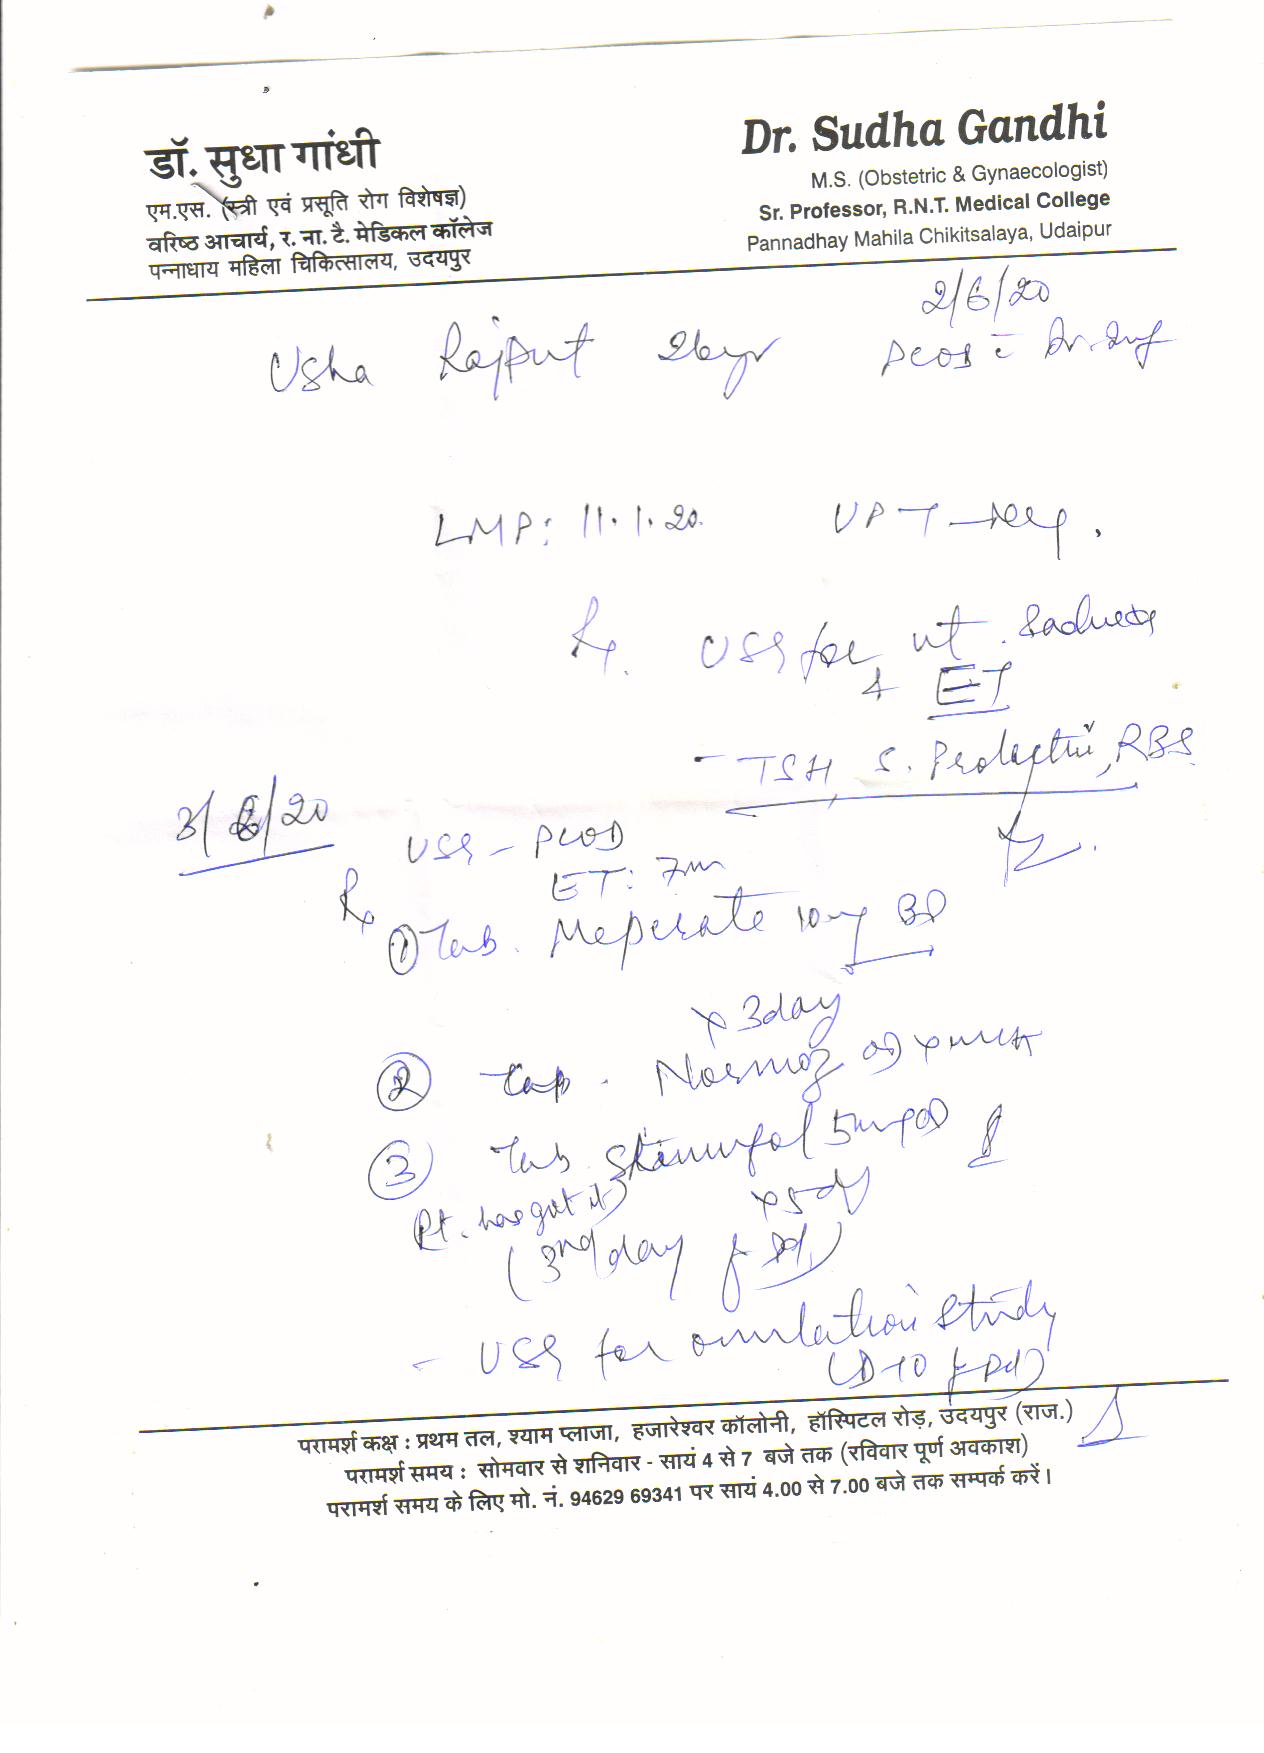 डॉ. सुधा गांधी
एम.एस. (स्त्री एवं प्रसूति रोग विशेषज्ञ)
वरिष्ठ आचार्य, र. ना. टै. मेडिकल कॉलेज
पन्नाधाय महिला चिकित्सालय, उदयपुर
Dr. Sudha Gandhi
M.S. (Obstetric & Gynaecologist)
Sr. Professor, R.N.T. Medical College
Pannadhay Mahila Chikitsalaya, Udaipur
2/6/20
Usha Rajput 26yr PCOS c̄
LMP: 11.1.20. UPT -
Rx. USG for ut.
& ET
- TSH, S. Prolactin, RBS
3/6/20
USG - PCOD
ET: 7mm
Rx
① Tab. Meperate 10mg BD
x 3day
② Cap. Normoz OD x
③ Tab 5mg OD
x 5d
Pt. has got it
(3rd day of Pd.)
- USG for ovulation study
(D-10 of Pd)
परामर्श कक्ष : प्रथम तल, श्याम प्लाजा, हजारेश्वर कॉलोनी, हॉस्पिटल रोड़, उदयपुर (राज.)
परामर्श समय : सोमवार से शनिवार - सायं 4 से 7 बजे तक (रविवार पूर्ण अवकाश)
परामर्श समय के लिए मो. नं. 94629 69341 पर सायं 4.00 से 7.00 बजे तक सम्पर्क करें।